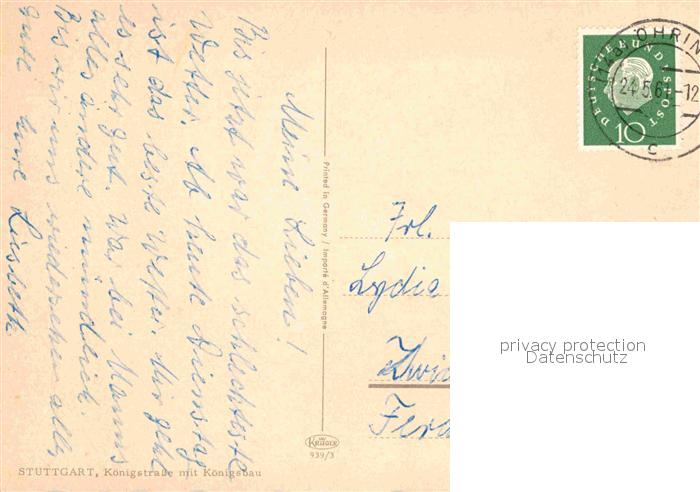 Meine Lieben!
Bis jetzt war das schlechteste
Wetter. Ab heute Dienstag
ist das beste Wetter. Mir geht
es sehr gut. War bei Manns
alles andere mündlich.
Bis wir uns wiedersehen alles
gute eure Lisbeth
Printed in Germany / Importé d'Allemagne
KRÜGER
939/3
STUTTGART, Königstraße mit Königsbau
ÖHRIN
24.5.6 -12
c
DEUTSCHE BUNDESPOST
10
Frl.
Lydia
privacy protection
Datenschutz